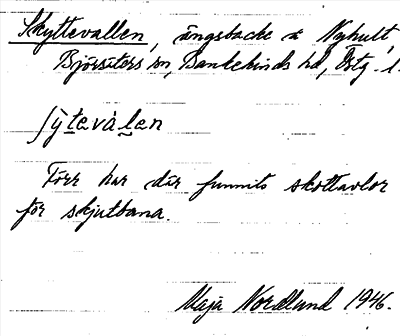 Skyttevallen, ängsbacke å Nyhult,
Björsäters sn, Bankekinds hd, Östg. l.
ʃỳtevàlen
Förr har där funnits skottavlor
för skjutbana.
Maja Nordlund 1946.